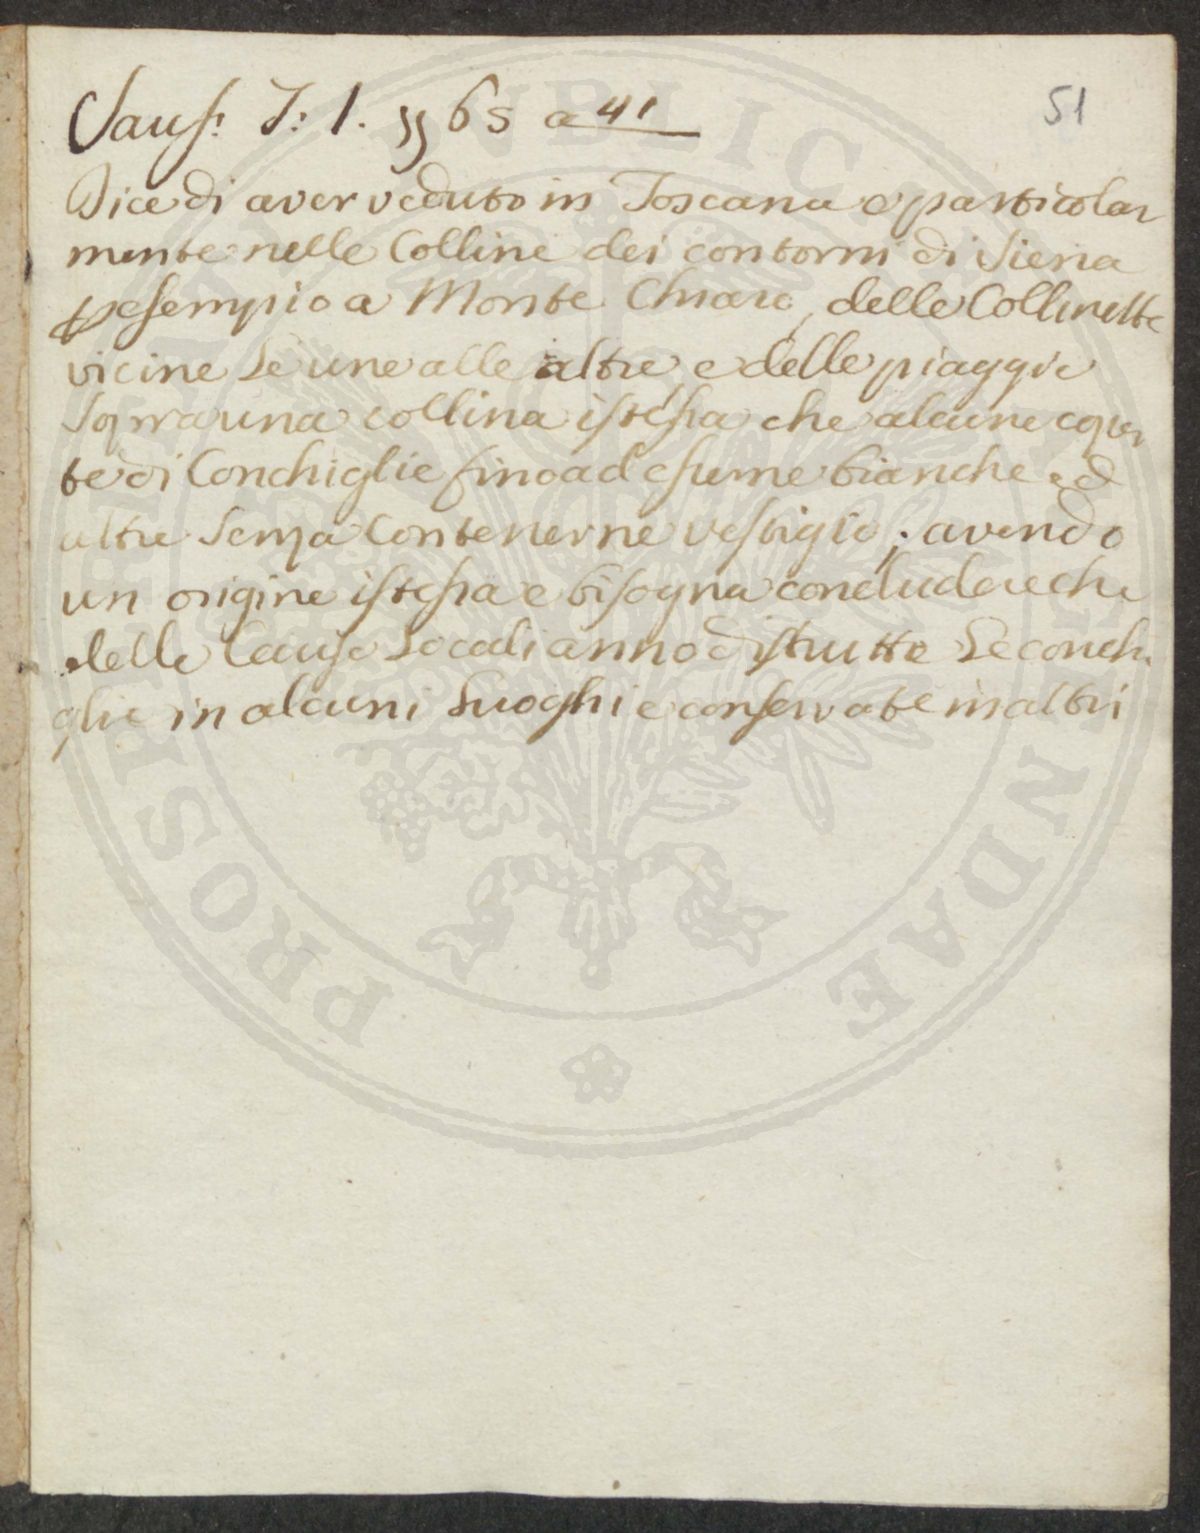 51
Saus: T: 1. § 65 a 41
Dice di aver veduto in Toscana e particolar
mente nelle Colline dei contorni di Siena
p esempio a Monte Chiaro, delle Collinette
vicine Le une alle altre e delle piaggie
Sopra una collina istessa che alcune coper
te di Conchiglie fino ad esserne bianche ed
altre Senza Contenerne vestigio; avendo
un origine istessa e bisogna concludere che
delle Cause Locali anno distrutte Le conchi
glie in alcuni Luoghi e conservate in altri
PROSPERITATI PUBLICAE AUGENDAE